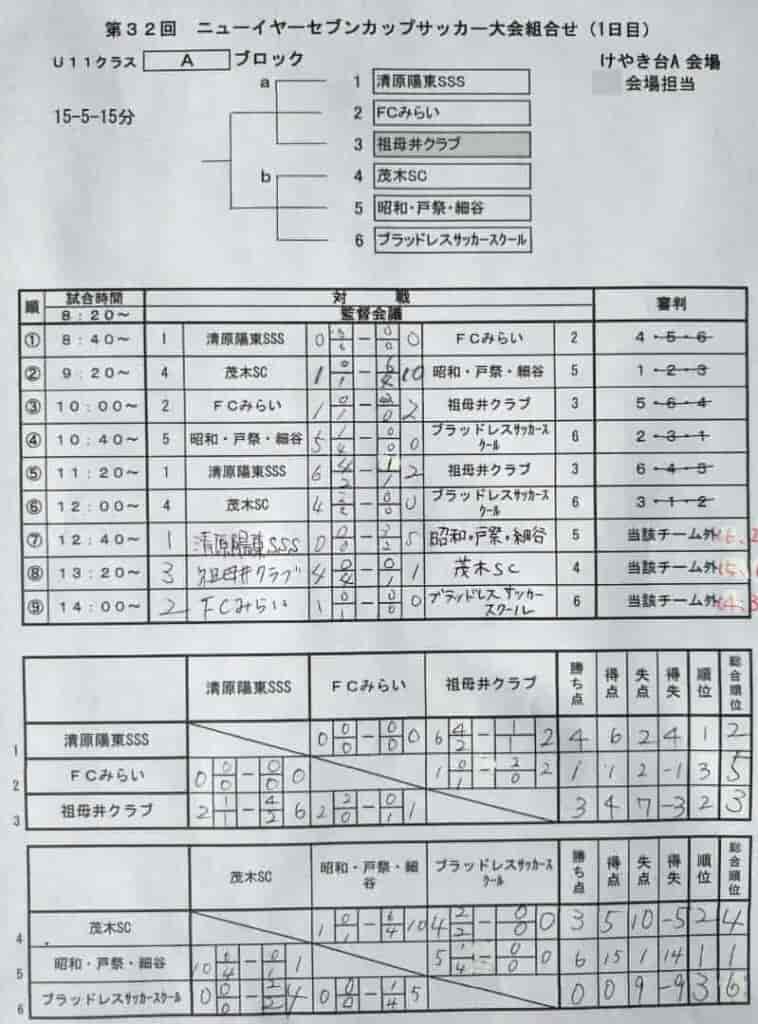 第32回 ニューイヤーセブンカップサッカー大会組合せ（1日目）
U11クラス A ブロック けやき台A 会場
会場担当
15-5-15分
a 1 清原陽東SSS
2 FCみらい
3 祖母井クラブ
b 4 茂木SC
5 昭和・戸祭・細谷
6 ブラッドレスサッカースクール
順 試合時間 対 戦 審判
8:20～ 監督会議
① 8:40～ 1 清原陽東SSS 0 - 0 0 0 FCみらい 2 4・5・6
② 9:20～ 4 茂木SC 1 0 1 - 6 4 10 昭和・戸祭・細谷 5 1・2・3
③ 10:00～ 2 FCみらい 1 0 1 - 2 0 2 祖母井クラブ 3 5・6・4
④ 10:40～ 5 昭和・戸祭・細谷 5 1 4 - 0 0 0 ブラッドレスサッカースクール 6 2・3・1
⑤ 11:20～ 1 清原陽東SSS 6 4 2 - 1 1 2 祖母井クラブ 3 6・4・5
⑥ 12:00～ 4 茂木SC 4 2 2 - 0 0 0 ブラッドレスサッカースクール 6 3・1・2
⑦ 12:40～ 1 清原陽東SSS 0 0 0 - 5 昭和・戸祭・細谷 5 当該チーム外
⑧ 13:20～ 3 祖母井クラブ 4 0 4 - 0 1 1 茂木SC 4 当該チーム外
⑨ 14:00～ 2 FCみらい 1 - 0 0 0 ブラッドレスサッカースクール 6 当該チーム外
清原陽東SSS FCみらい 祖母井クラブ 勝ち点 得点 失点 得失 順位 総合順位
1 清原陽東SSS 0 0 0 - 0 0 0 6 4 2 - 1 1 2 4 6 2 4 1 2
2 FCみらい 0 0 0 - 0 0 0 1 0 1 - 2 0 2 1 1 2 -1 3 5
3 祖母井クラブ 2 1 1 - 4 2 6 2 2 0 - 0 1 1 3 4 7 -3 2 3
茂木SC 昭和・戸祭・細谷 ブラッドレスサッカースクール 勝ち点 得点 失点 得失 順位 総合順位
4 茂木SC 1 0 1 - 6 4 10 4 2 2 - 0 0 0 3 5 10 -5 2 4
5 昭和・戸祭・細谷 10 6 4 - 0 1 1 5 1 4 - 0 0 0 6 15 1 14 1 1
6 ブラッドレスサッカースクール 0 0 0 - 2 2 4 0 0 0 - 1 4 5 0 0 9 -9 3 6